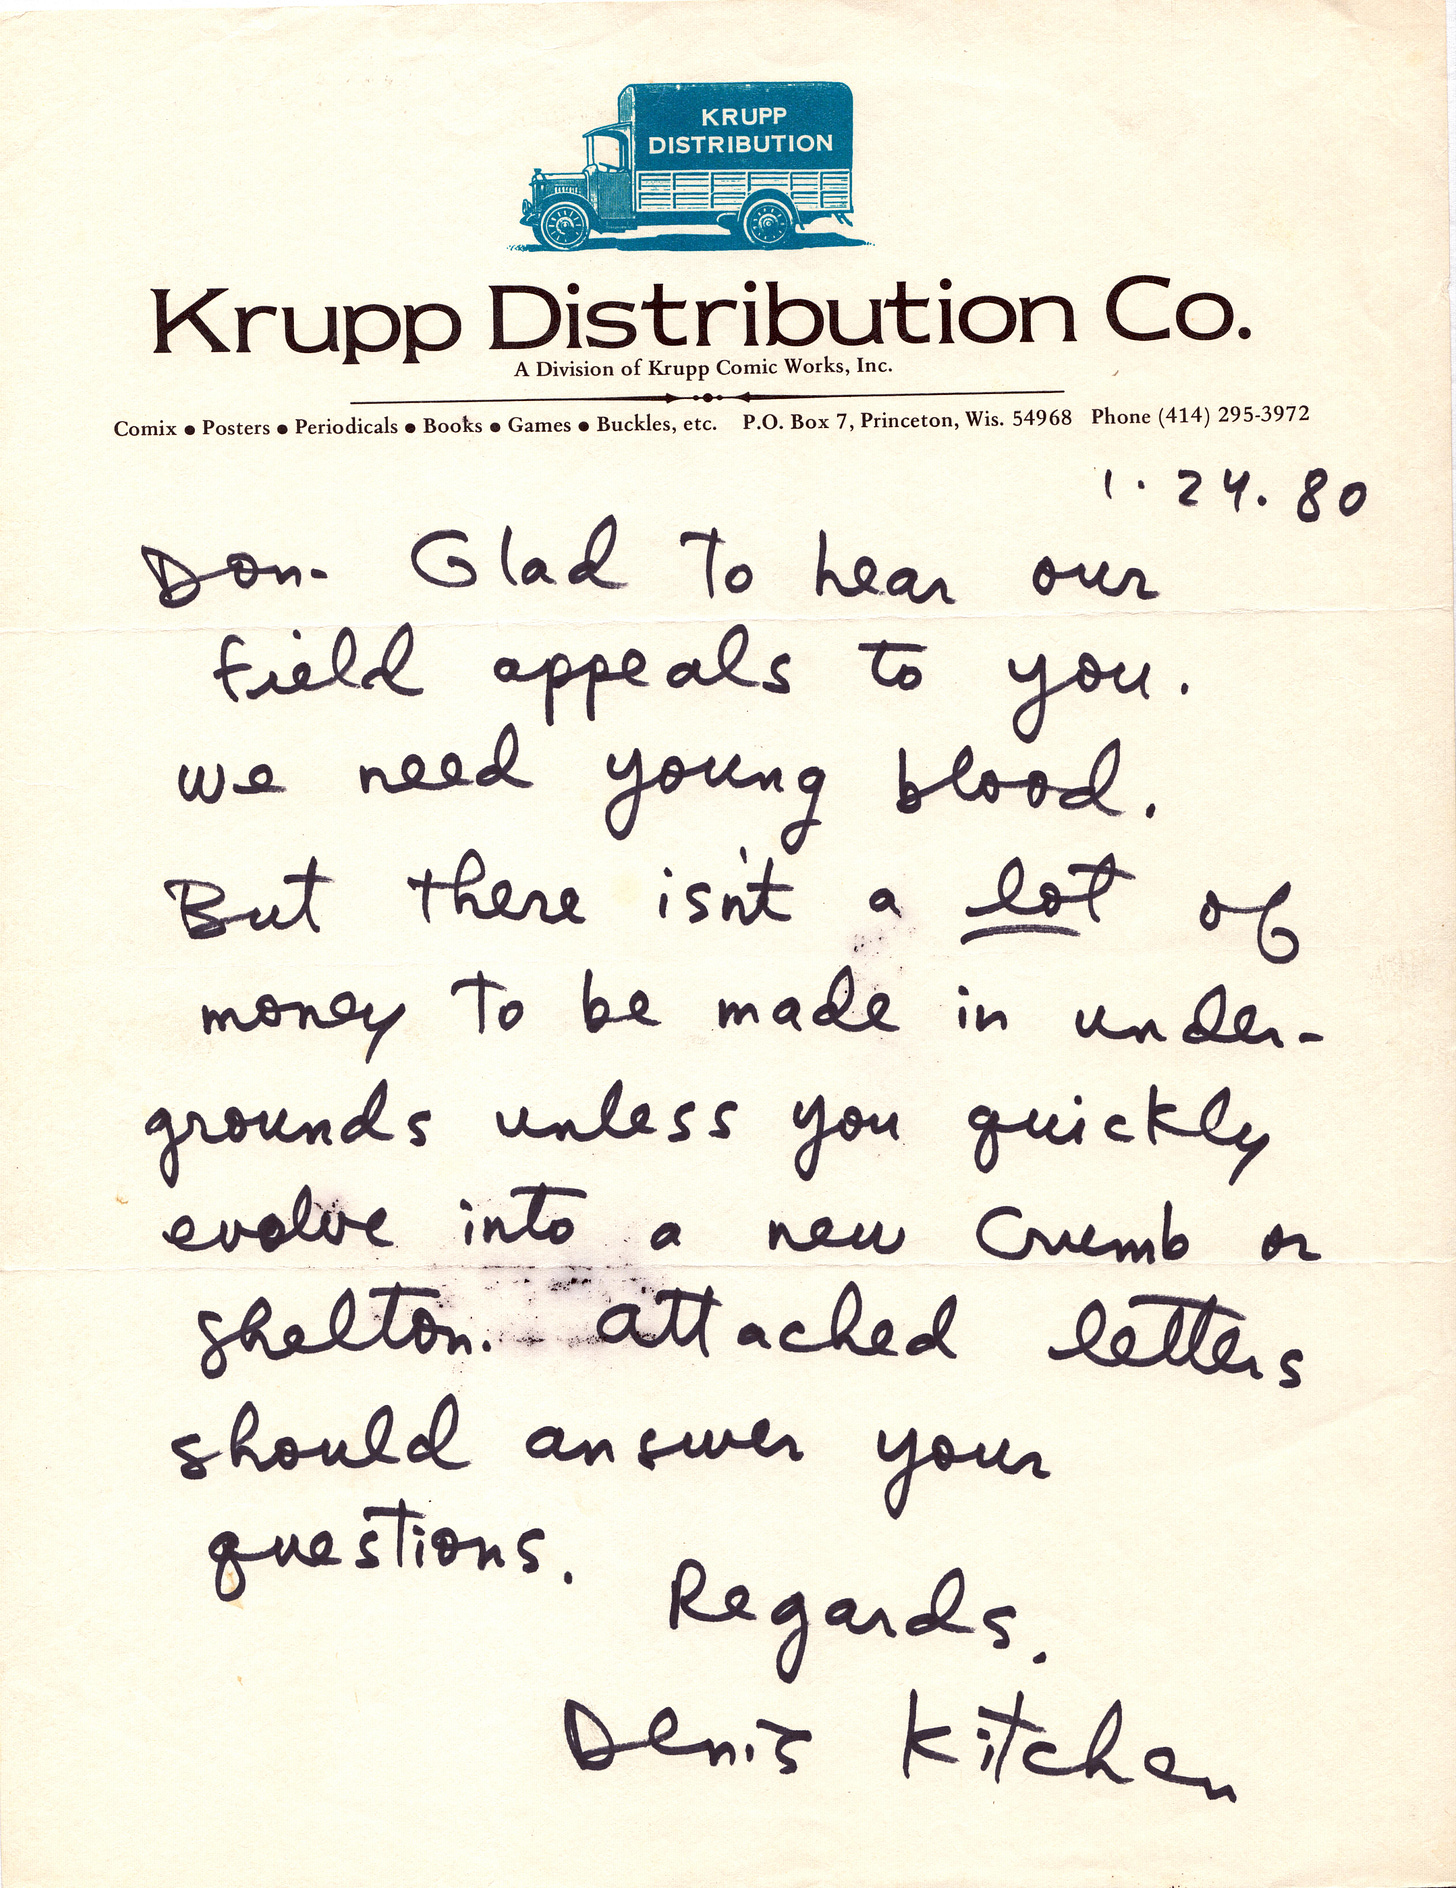 KRUPP
DISTRIBUTION
Krupp Distribution Co.
A Division of Krupp Comic Works, Inc.
Comix ● Posters ● Periodicals ● Books ● Games ● Buckles, etc. P.O. Box 7, Princeton, Wis. 54968 Phone (414) 295-3972
1. 24. 80
Don- Glad to hear our
field appeals to you.
we need young blood.
But there isn't a lot of
money to be made in under-
grounds unless you quickly
evolve into a new Crumb or
Shelton. Attached letters
should answer your
questions.
Regards.
Denis Kitchen